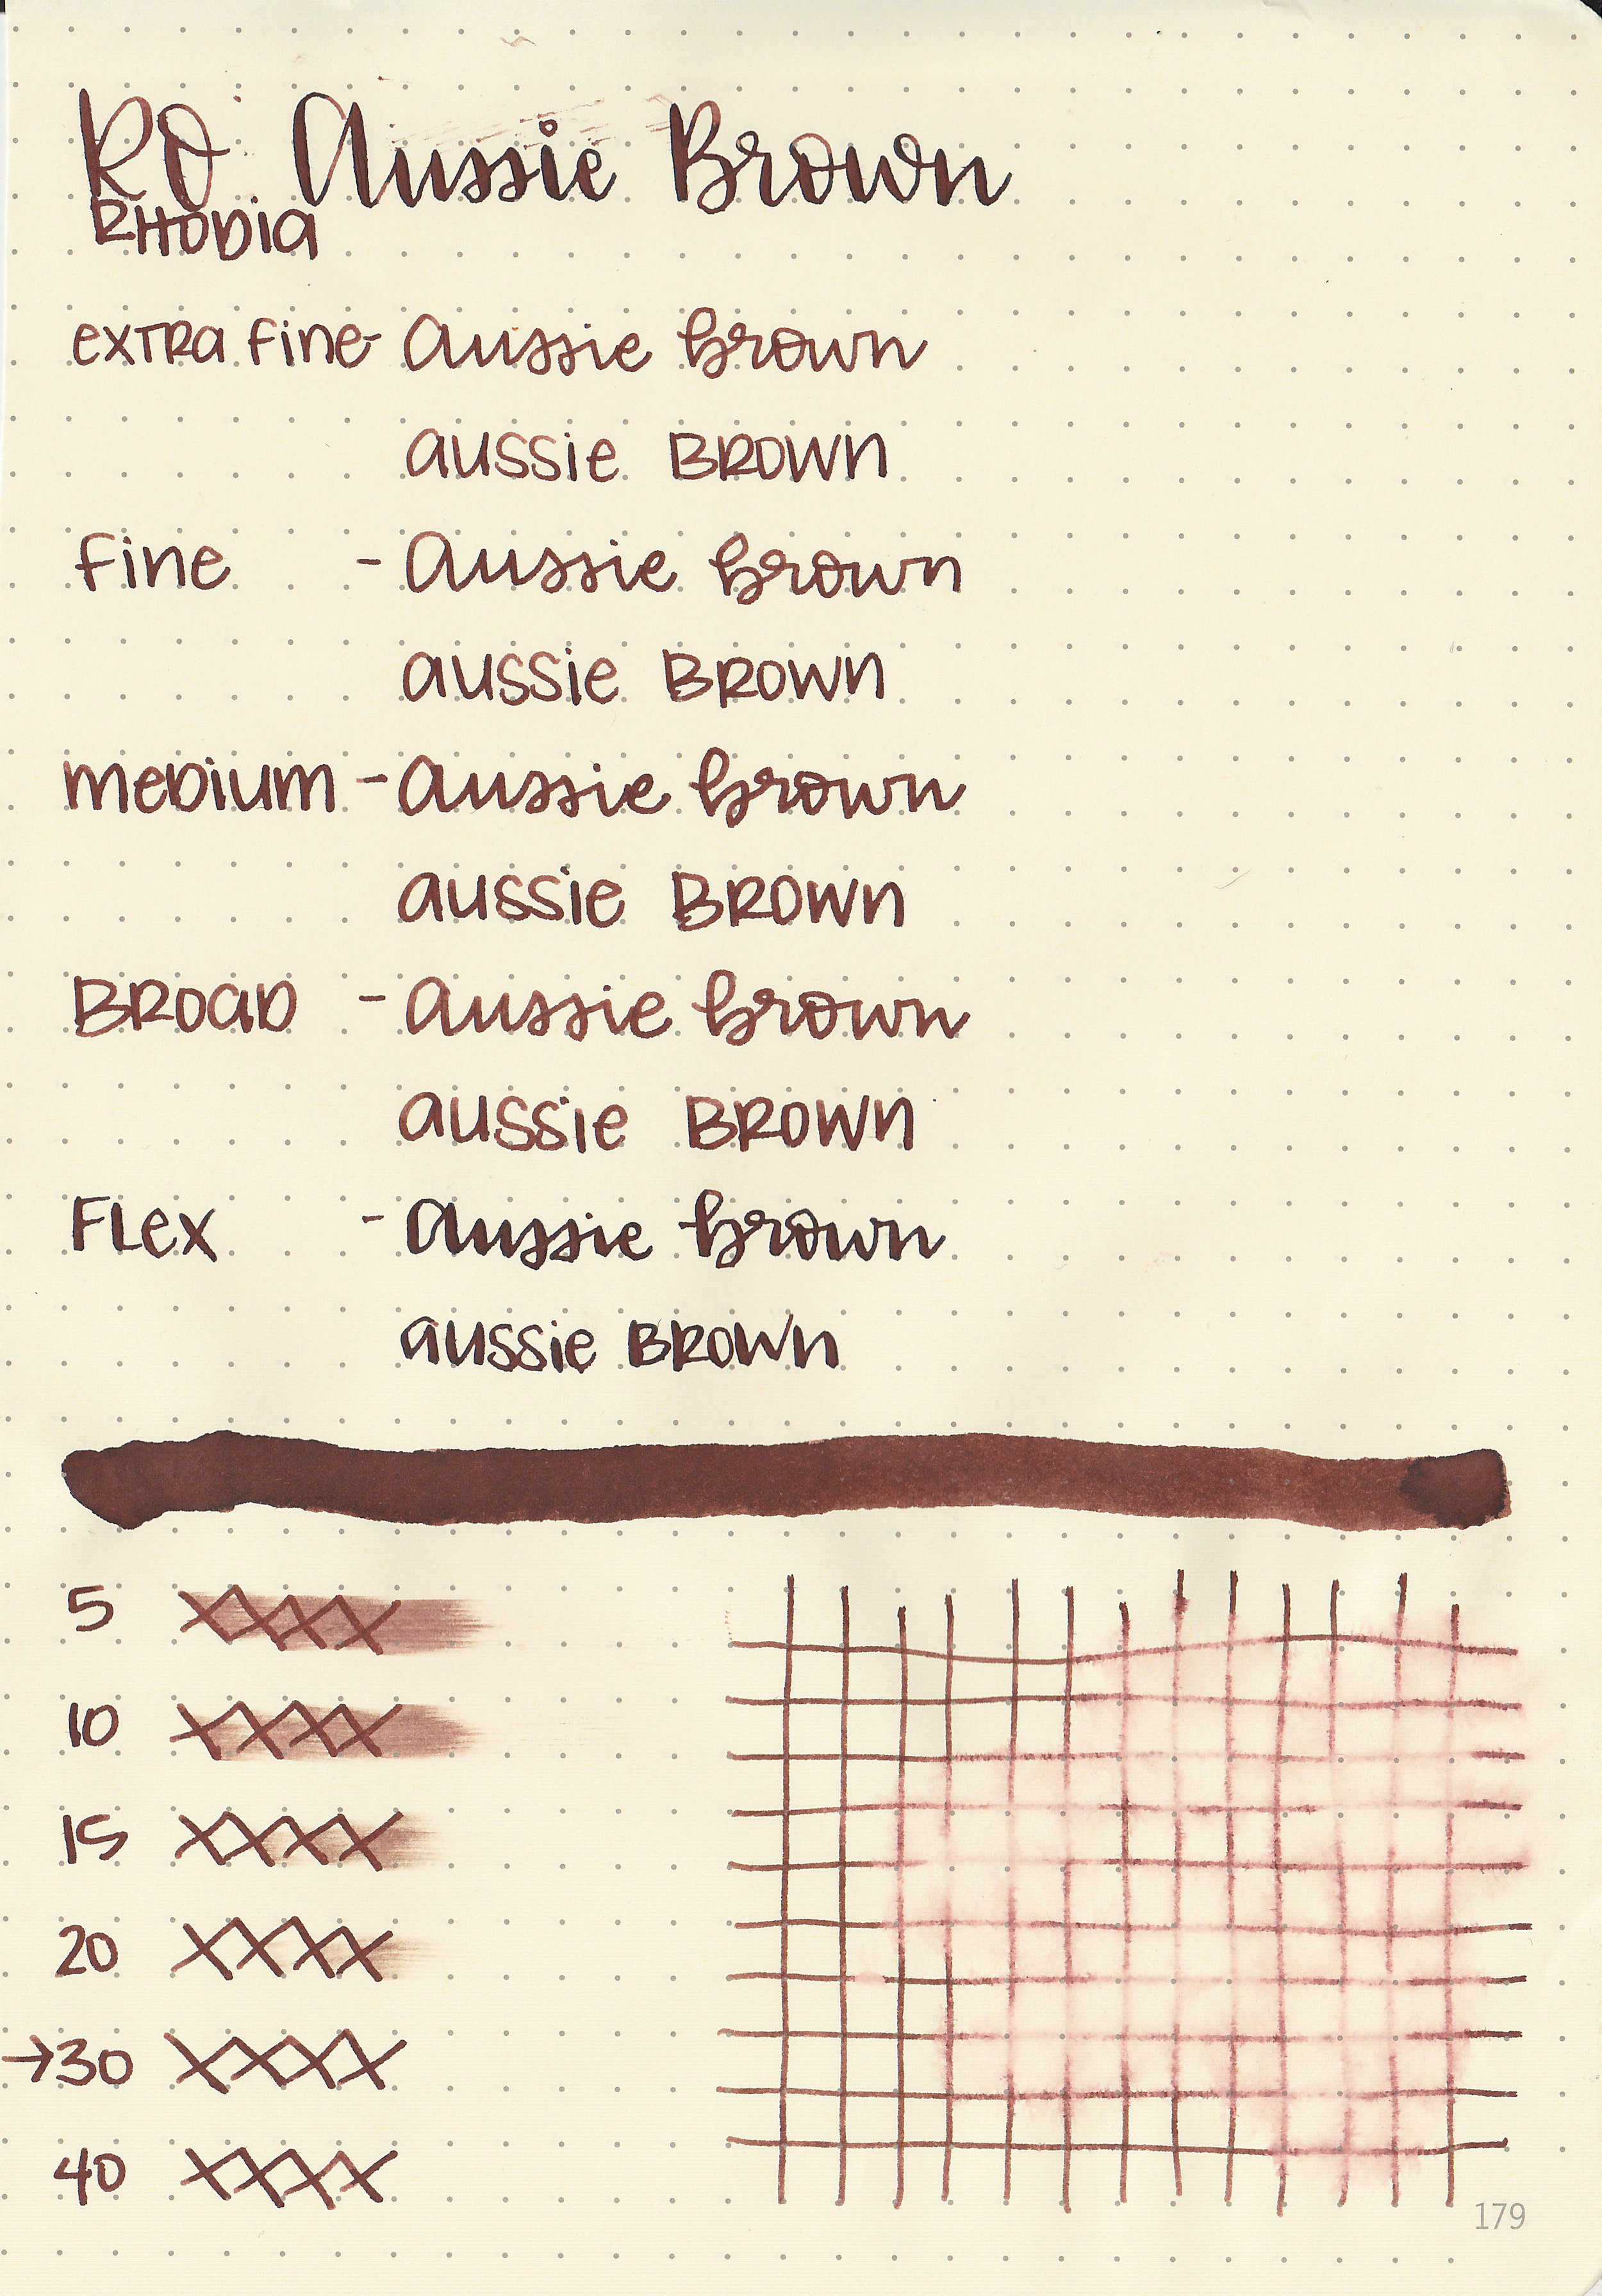 RO Aussie Brown
RHODIA
extra fine- Aussie brown
aussie BROWN
fine - Aussie brown
aussie BROWN
medium - Aussie brown
aussie BROWN
BROAD - Aussie brown
aussie BROWN
FLex - Aussie brown
aussie BROWN
5 XXXX
10 XXXX
15 XXXX
20 XXXX
→30 XXXX
40 XXXX
179